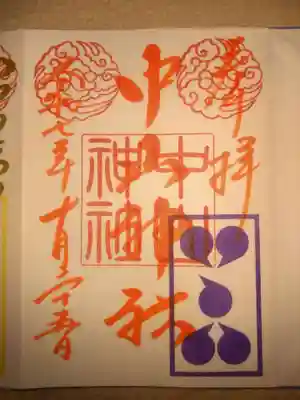 奉拝
中山神社
中山
神社
令和七年十月二十五日